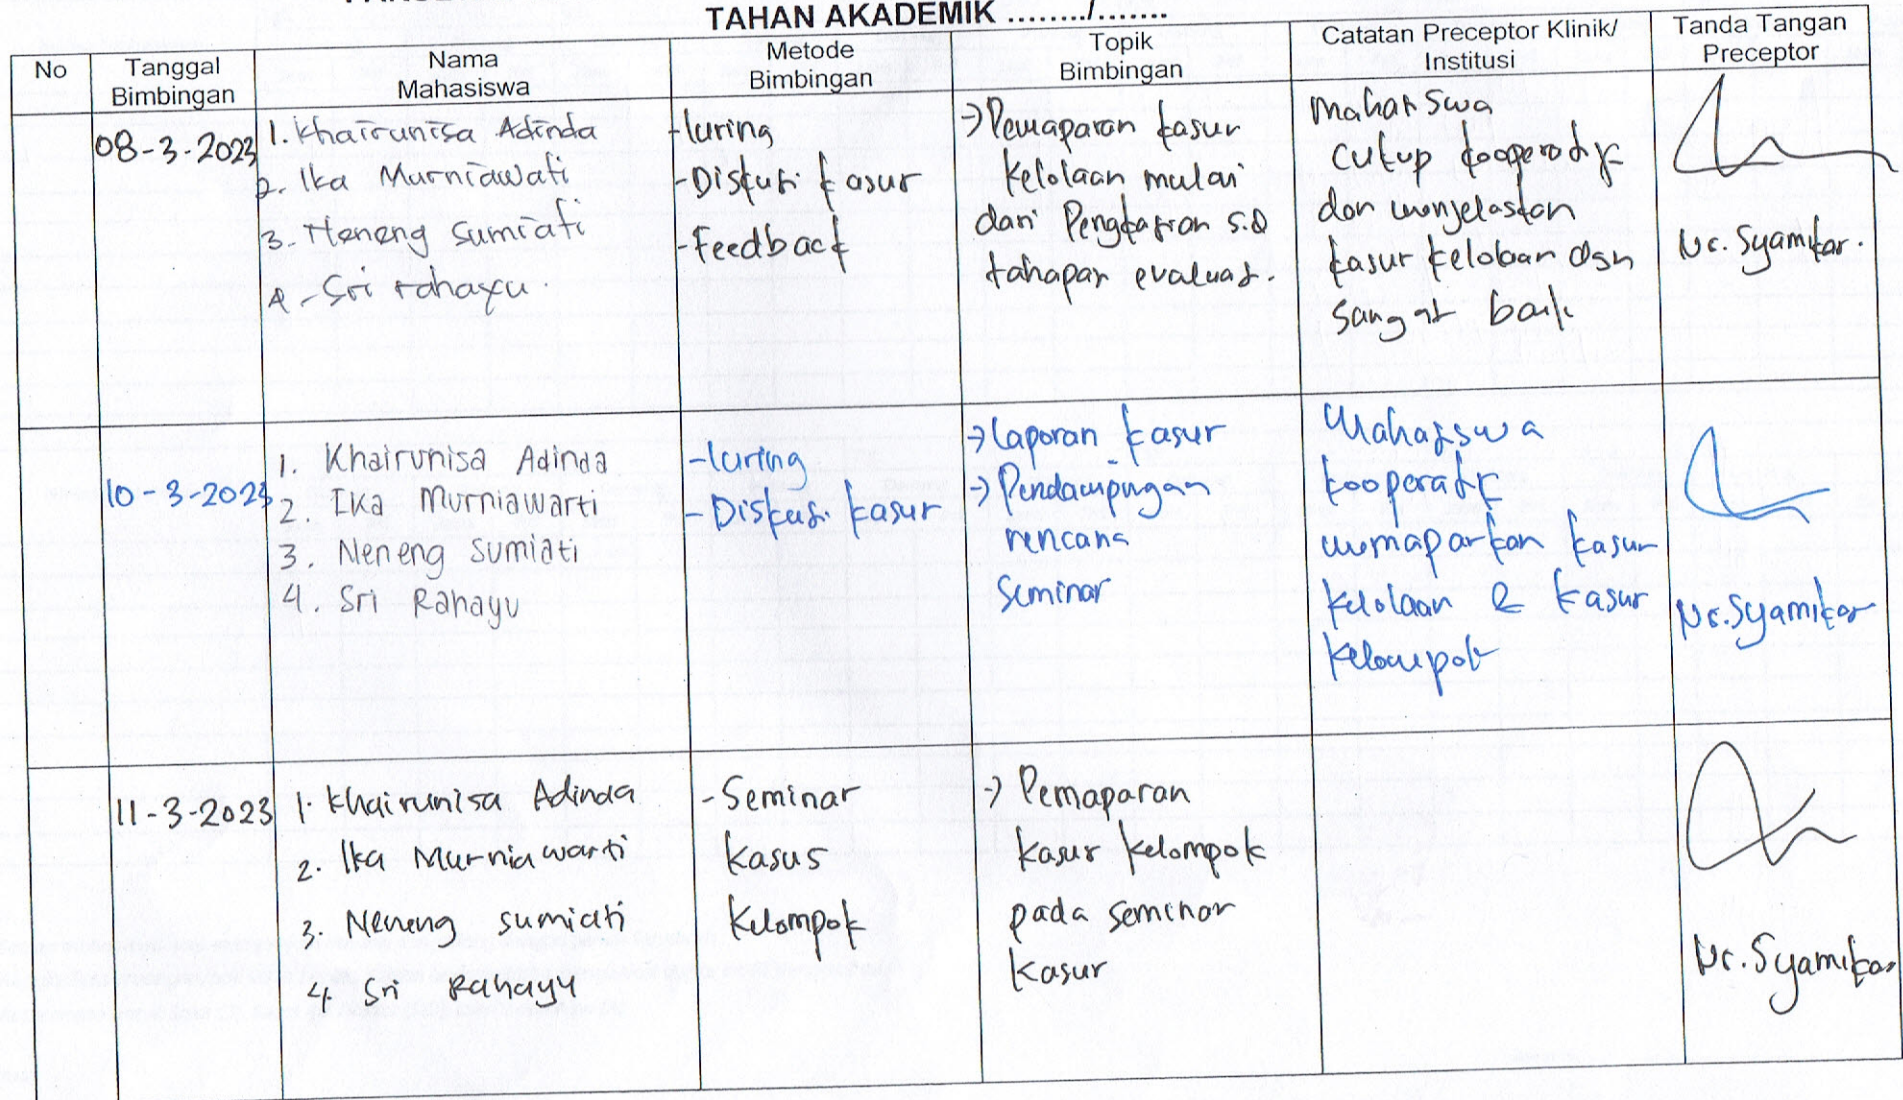 TAHAN AKADEMIK ......../.......
No
Tanggal
Bimbingan
Nama
Mahasiswa
Metode
Bimbingan
Topik
Bimbingan
Catatan Preceptor Klinik/
Institusi
Tanda Tangan
Preceptor
08-3-2023
1. Khairunisa Adinda
2. Ika Murniawati
3. Neneng Sumiati
4 - Sri rahayu.
- luring
- Diskusi kasus
- Feedback
→ Pemaparan kasus
kelolaan mulai
dari Pengkajian s.d
tahapan evaluasi.
Mahasiswa
cukup kooperatif
dan menjelaskan
kasus kelolaan dgn
sangat baik
Nr. Syamikar.
10-3-2023
1. Khairunisa Adinda
2. Ika Murniawarti
3. Neneng Sumiati
4. Sri Rahayu
- luring
- Diskusi kasus
→ Laporan kasus
→ Pendampingan
rencana
Seminar
Mahasiswa
kooperatif
memaparkan kasus
kelolaan & kasus
kelompok
Nr. Syamikar
11-3-2023
1. Khairunisa Adinda
2. Ika Murniawarti
3. Neneng sumiati
4 Sri Rahayu
- Seminar
Kasus
Kelompok
→ Pemaparan
kasus kelompok
pada seminar
kasus
Nr. Syamikar